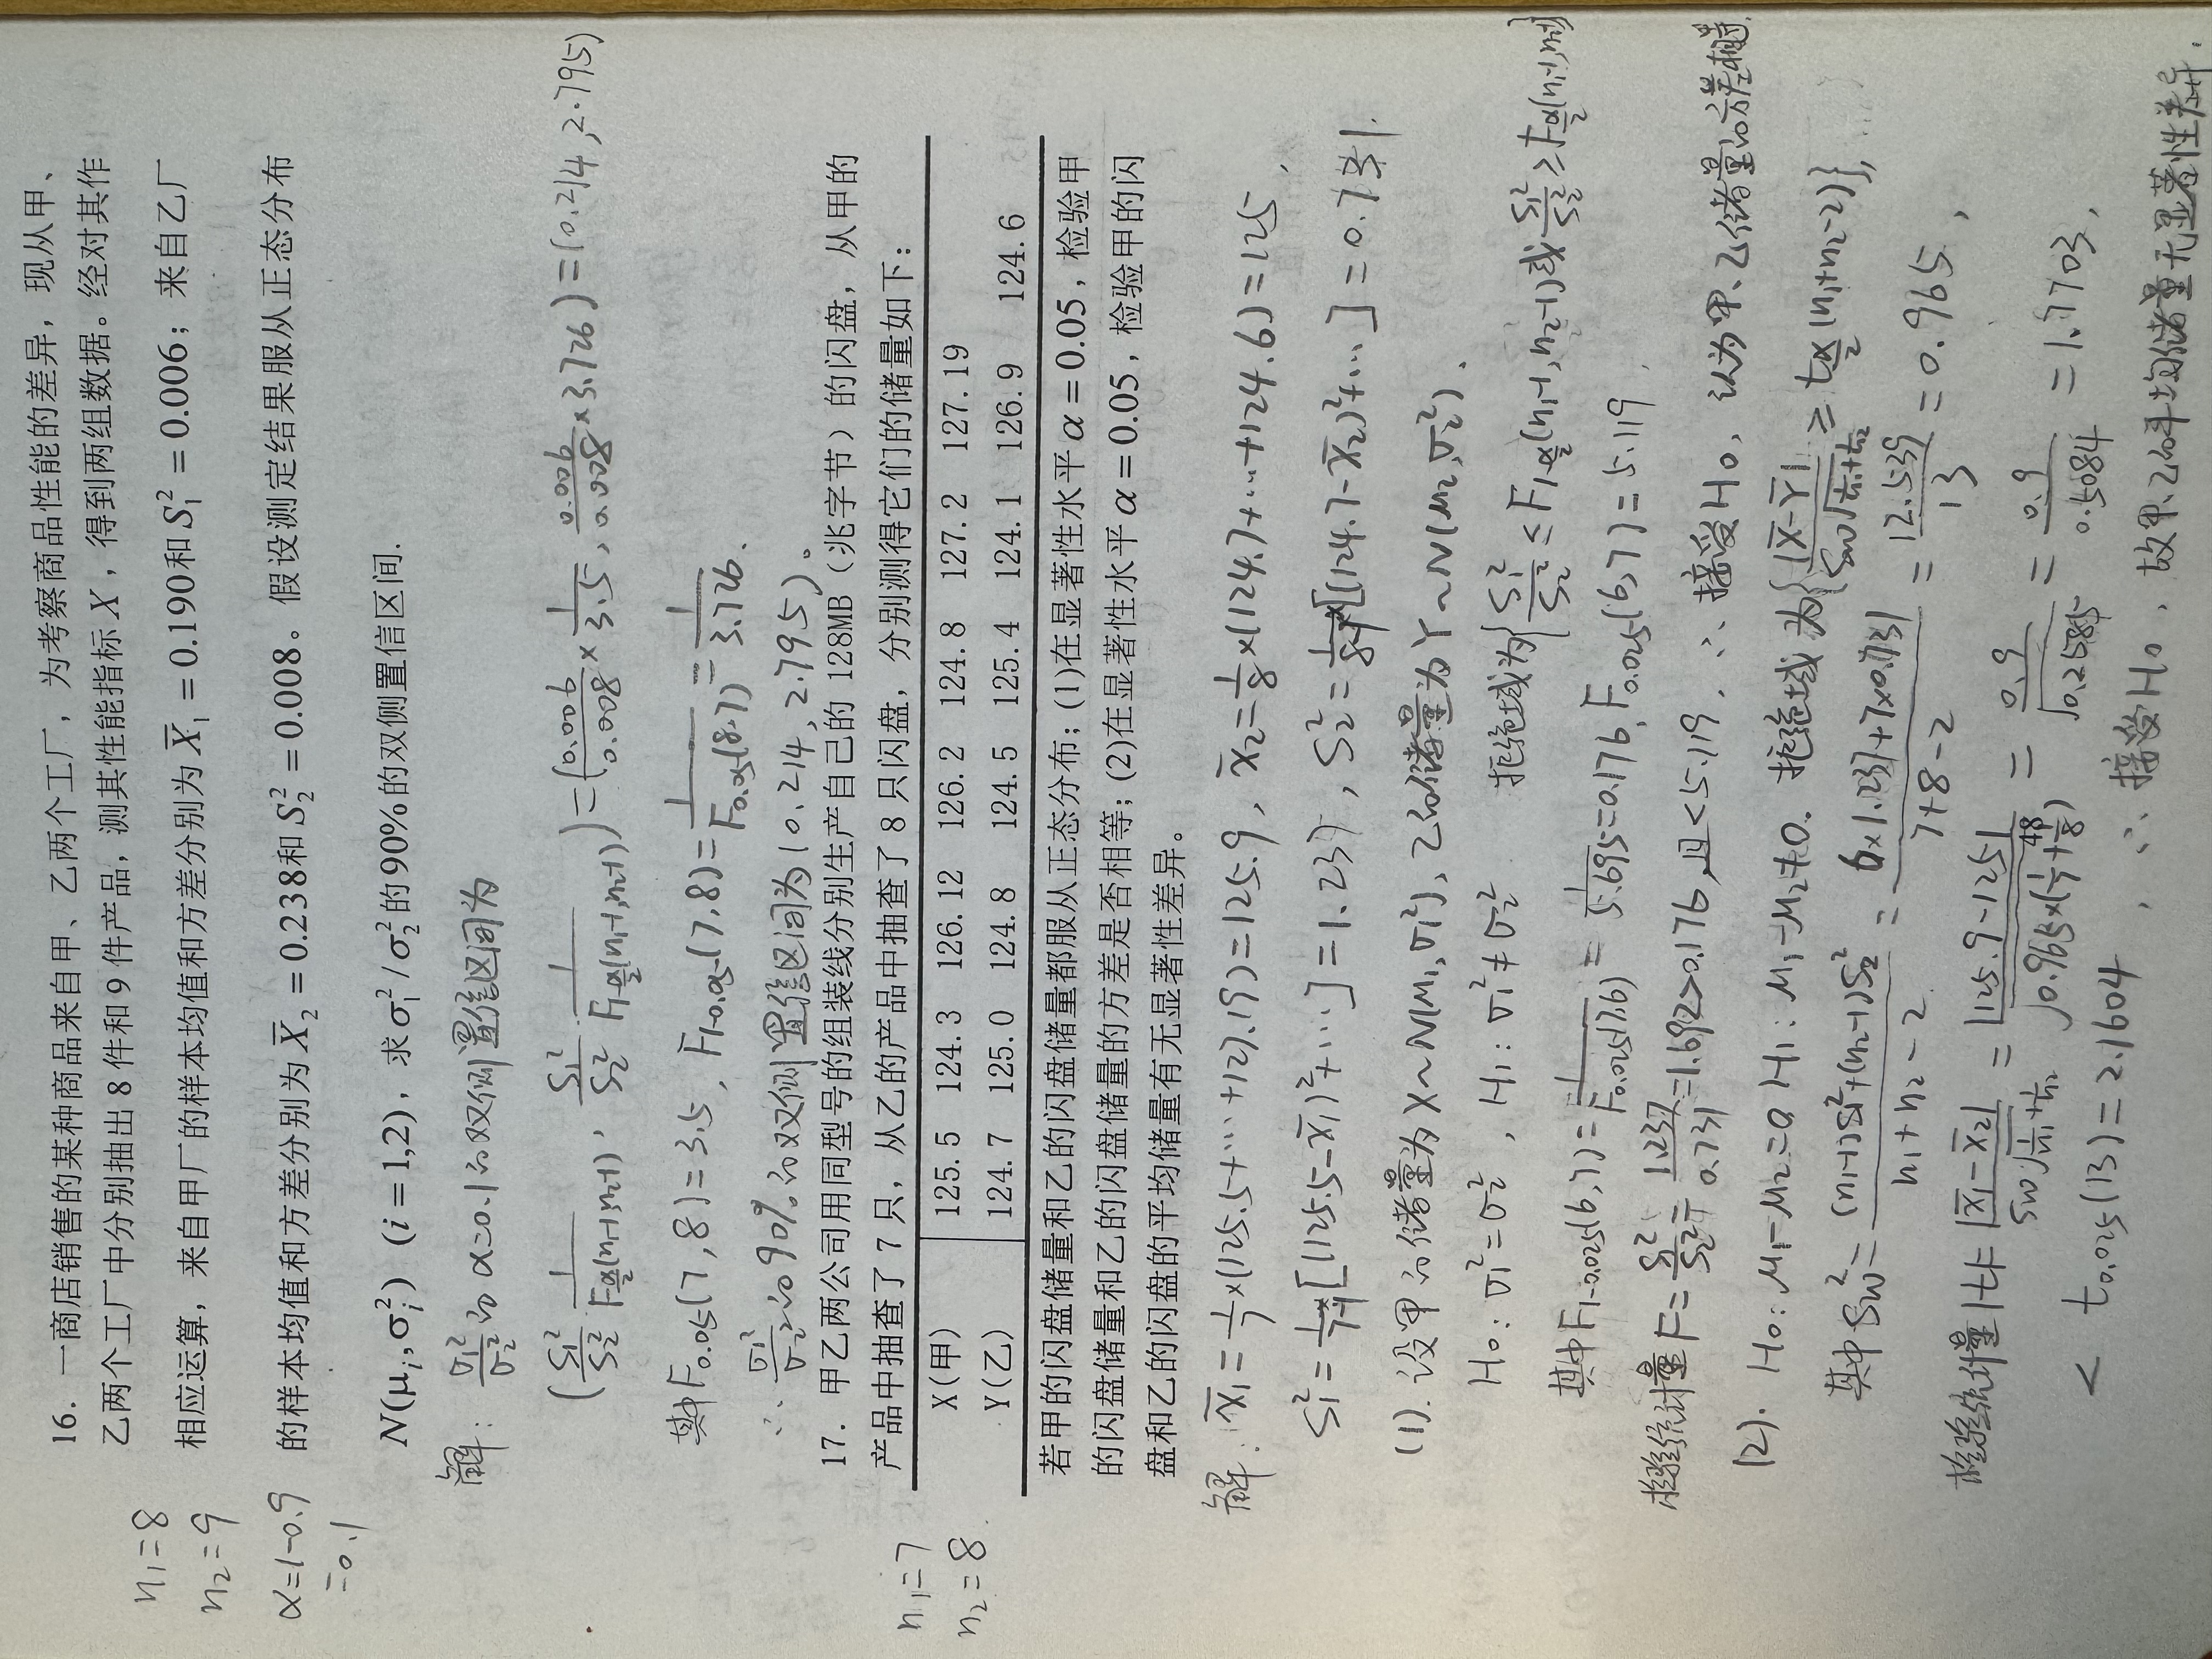 16. 一商店销售的某种商品来自甲、乙两个工厂，为考察商品性能的差异，现从甲、
乙两个工厂中分别抽出 8 件和 9 件产品，测其性能指标 X ，得到两组数据。经对其作
n₁=8
相应运算，来自甲厂的样本均值和方差分别为 X̄₁ = 0.190和 S₁² = 0.006；来自乙厂
n₂=9
α=1-0.9
=0.1
的样本均值和方差分别为 X̄₂ = 0.238和 S₂² = 0.008。假设测定结果服从正态分布
N(μᵢ,σᵢ²) (i = 1,2)，求σ₁² / σ₂²的90%的双侧置信区间.
解: σ₁²/σ₂² 的 α=0.1的双侧置信区间为
(S₁²/S₂² · 1/F_{α/2}(n₁-1,n₂-1), S₁²/S₂² · 1/F_{1-α/2}(n₁-1,n₂-1)) = (0.006/0.008 × 1/3.5, 0.006/0.008 × 3.726) = (0.214, 2.795)
其中F₀.₀₅(7,8)=3.5, F₁₋₀.₀₅(7,8)= 1/F₀.₀₅(8,7) = 1/3.726.
∴ σ₁²/σ₂² 的90%的双侧置信区间为(0.214, 2.795)。
17. 甲乙两公司用同型号的组装线分别生产自己的 128MB（兆字节）的闪盘，从甲的
产品中抽查了 7 只，从乙的产品中抽查了 8 只闪盘，分别测得它们的储量如下：
n₁=7
n₂=8.
X(甲) 125.5 124.3 126.12 126.2 124.8 127.2 127.19
Y(乙) 124.7 125.0 124.8 124.5 125.4 124.1 126.9 124.6
若甲的闪盘储量和乙的闪盘储量都服从正态分布；(1)在显著性水平α = 0.05，检验甲
的闪盘储量和乙的闪盘储量的方差是否相等；(2)在显著性水平α = 0.05，检验甲的闪
盘和乙的闪盘的平均储量有无显著性差异。
解: x̄₁ = 1/7×(125.5+⋯+127.19)=125.9, x̄₂=1/8×(124.7+⋯+124.6)=125,
S₁² = 1/(7-1)×[(125.5-x̄₁)²+⋯]=1.237, S₂² = 1/(8-1)×[(124.7-x̄₂)²+⋯] = 0.731.
(1). 设甲的储量为X~N(μ₁,σ₁²), 乙的储量为Y~N(μ₂,σ₂²).
H₀: σ₁²=σ₂², H₁: σ₁²≠σ₂² 拒绝域为{S₁²/S₂² ≤ F_{1-α/2}(n₁-1,n₂-1)或 S₁²/S₂² ≥ F_{α/2}(n₁-1,n₂-1)}
其中F₁₋₀.₀₂₅(6,7)= 1/F₀.₀₂₅(7,6) = 1/5.695=0.176, F₀.₀₂₅(6,7)=5.119,
检验统计量F= S₁²/S₂² = 1.237/0.731=1.692>0.176, 且<5.119, ∴ 接受H₀, 认为甲、乙储量的方差相等.
(2). H₀: μ₁-μ₂=0, H₁: μ₁-μ₂≠0. 拒绝域为{|X̄-Ȳ|/(Sw√(1/n₁+1/n₂)) ≥ t_{α/2}(n₁+n₂-2)},
其中 Sw² = ((n₁-1)S₁²+(n₂-1)S₂²)/(n₁+n₂-2) = (6×1.237+7×0.731)/(7+8-2) = 12.539/13 = 0.965,
检验统计量|t|= |x̄₁-x̄₂|/(Sw√(1/n₁+1/n₂)) = |125.9-125|/√(0.965×(1/7+1/8)) = 0.9/√0.2585 = 0.9/0.5084 = 1.7703,
< t₀.₀₂₅(13)=2.1604, ∴ 接受H₀, 故甲、乙的平均储量无显著性差异.